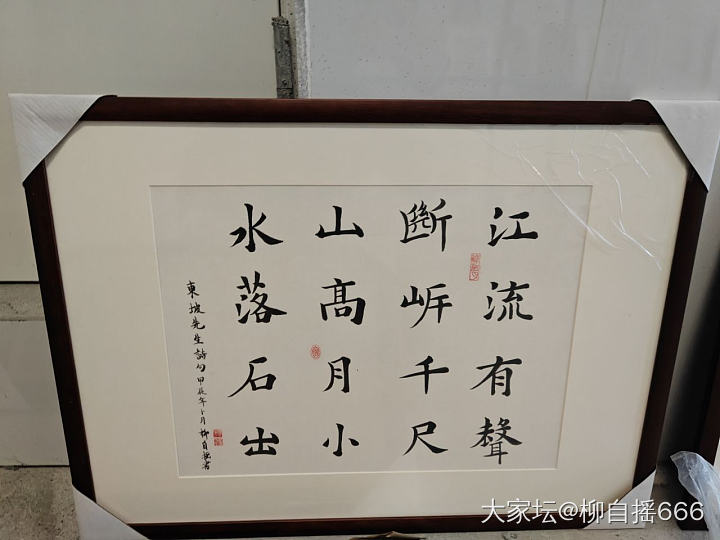 江流有聲
斷岸千尺
山高月小
水落石出
東坡先生詩句甲辰年卜月柳自摇書
大家坛@柳自摇666